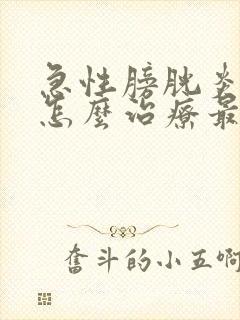 急性膀胱炎
怎麼治療最
奮斗的小五啊